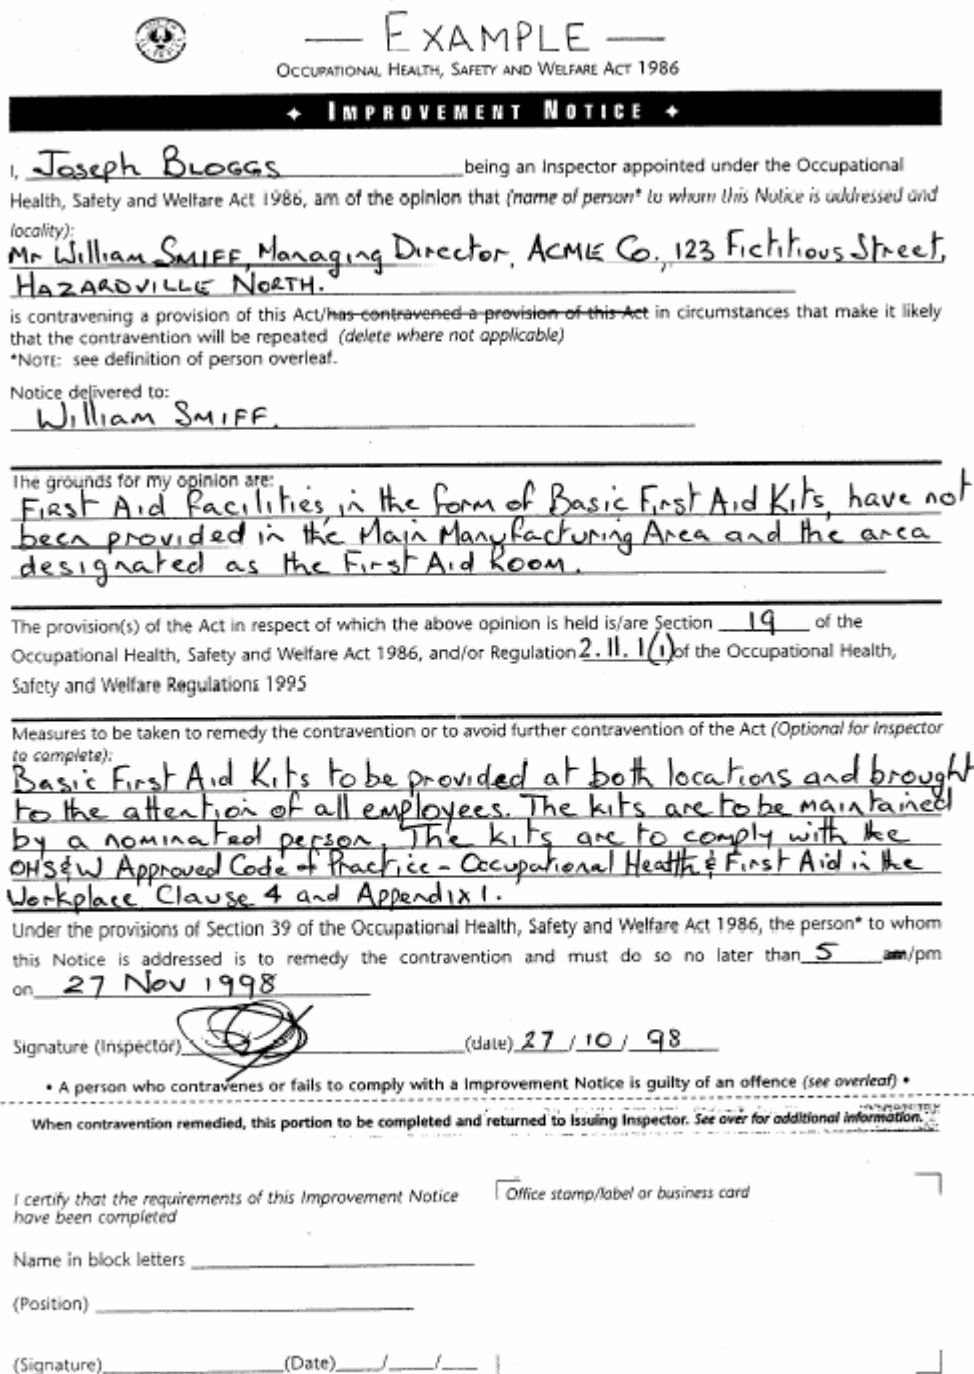 — EXAMPLE —
OCCUPATIONAL HEALTH, SAFETY AND WELFARE ACT 1986
✦ IMPROVEMENT NOTICE ✦
I, Joseph BLOGGS being an Inspector appointed under the Occupational
Health, Safety and Welfare Act 1986, am of the opinion that (name of person* to whom this Notice is addressed and
locality):
Mr William SMIFF, Managing Director, ACME Co., 123 Fictitious Street,
HAZARDVILLE NORTH.
is contravening a provision of this Act/has contravened a provision of this Act in circumstances that make it likely
that the contravention will be repeated (delete where not applicable)
*NOTE: see definition of person overleaf.
Notice delivered to:
William SMIFF.
The grounds for my opinion are:
First Aid facilities, in the form of Basic First Aid Kits, have not
been provided in the Main Manufacturing Area and the area
designated as the First Aid Room.
The provision(s) of the Act in respect of which the above opinion is held is/are Section 19 of the
Occupational Health, Safety and Welfare Act 1986, and/or Regulation 2.11.1(1) of the Occupational Health,
Safety and Welfare Regulations 1995
Measures to be taken to remedy the contravention or to avoid further contravention of the Act (Optional for Inspector
to complete):
Basic First Aid Kits to be provided at both locations and brought
to the attention of all employees. The kits are to be maintained
by a nominated person. The kits are to comply with the
OHS&W Approved Code of Practice - Occupational Health & First Aid in the
Workplace Clause 4 and Appendix 1.
Under the provisions of Section 39 of the Occupational Health, Safety and Welfare Act 1986, the person* to whom
this Notice is addressed is to remedy the contravention and must do so no later than 5 am/pm
on 27 Nov 1998
Signature (Inspector) (date) 27 / 10 / 98
• A person who contravenes or fails to comply with a Improvement Notice is guilty of an offence (see overleaf) •
When contravention remedied, this portion to be completed and returned to issuing Inspector. See over for additional information.
I certify that the requirements of this Improvement Notice
have been completed
Office stamp/label or business card
Name in block letters
(Position)
(Signature) (Date) / /